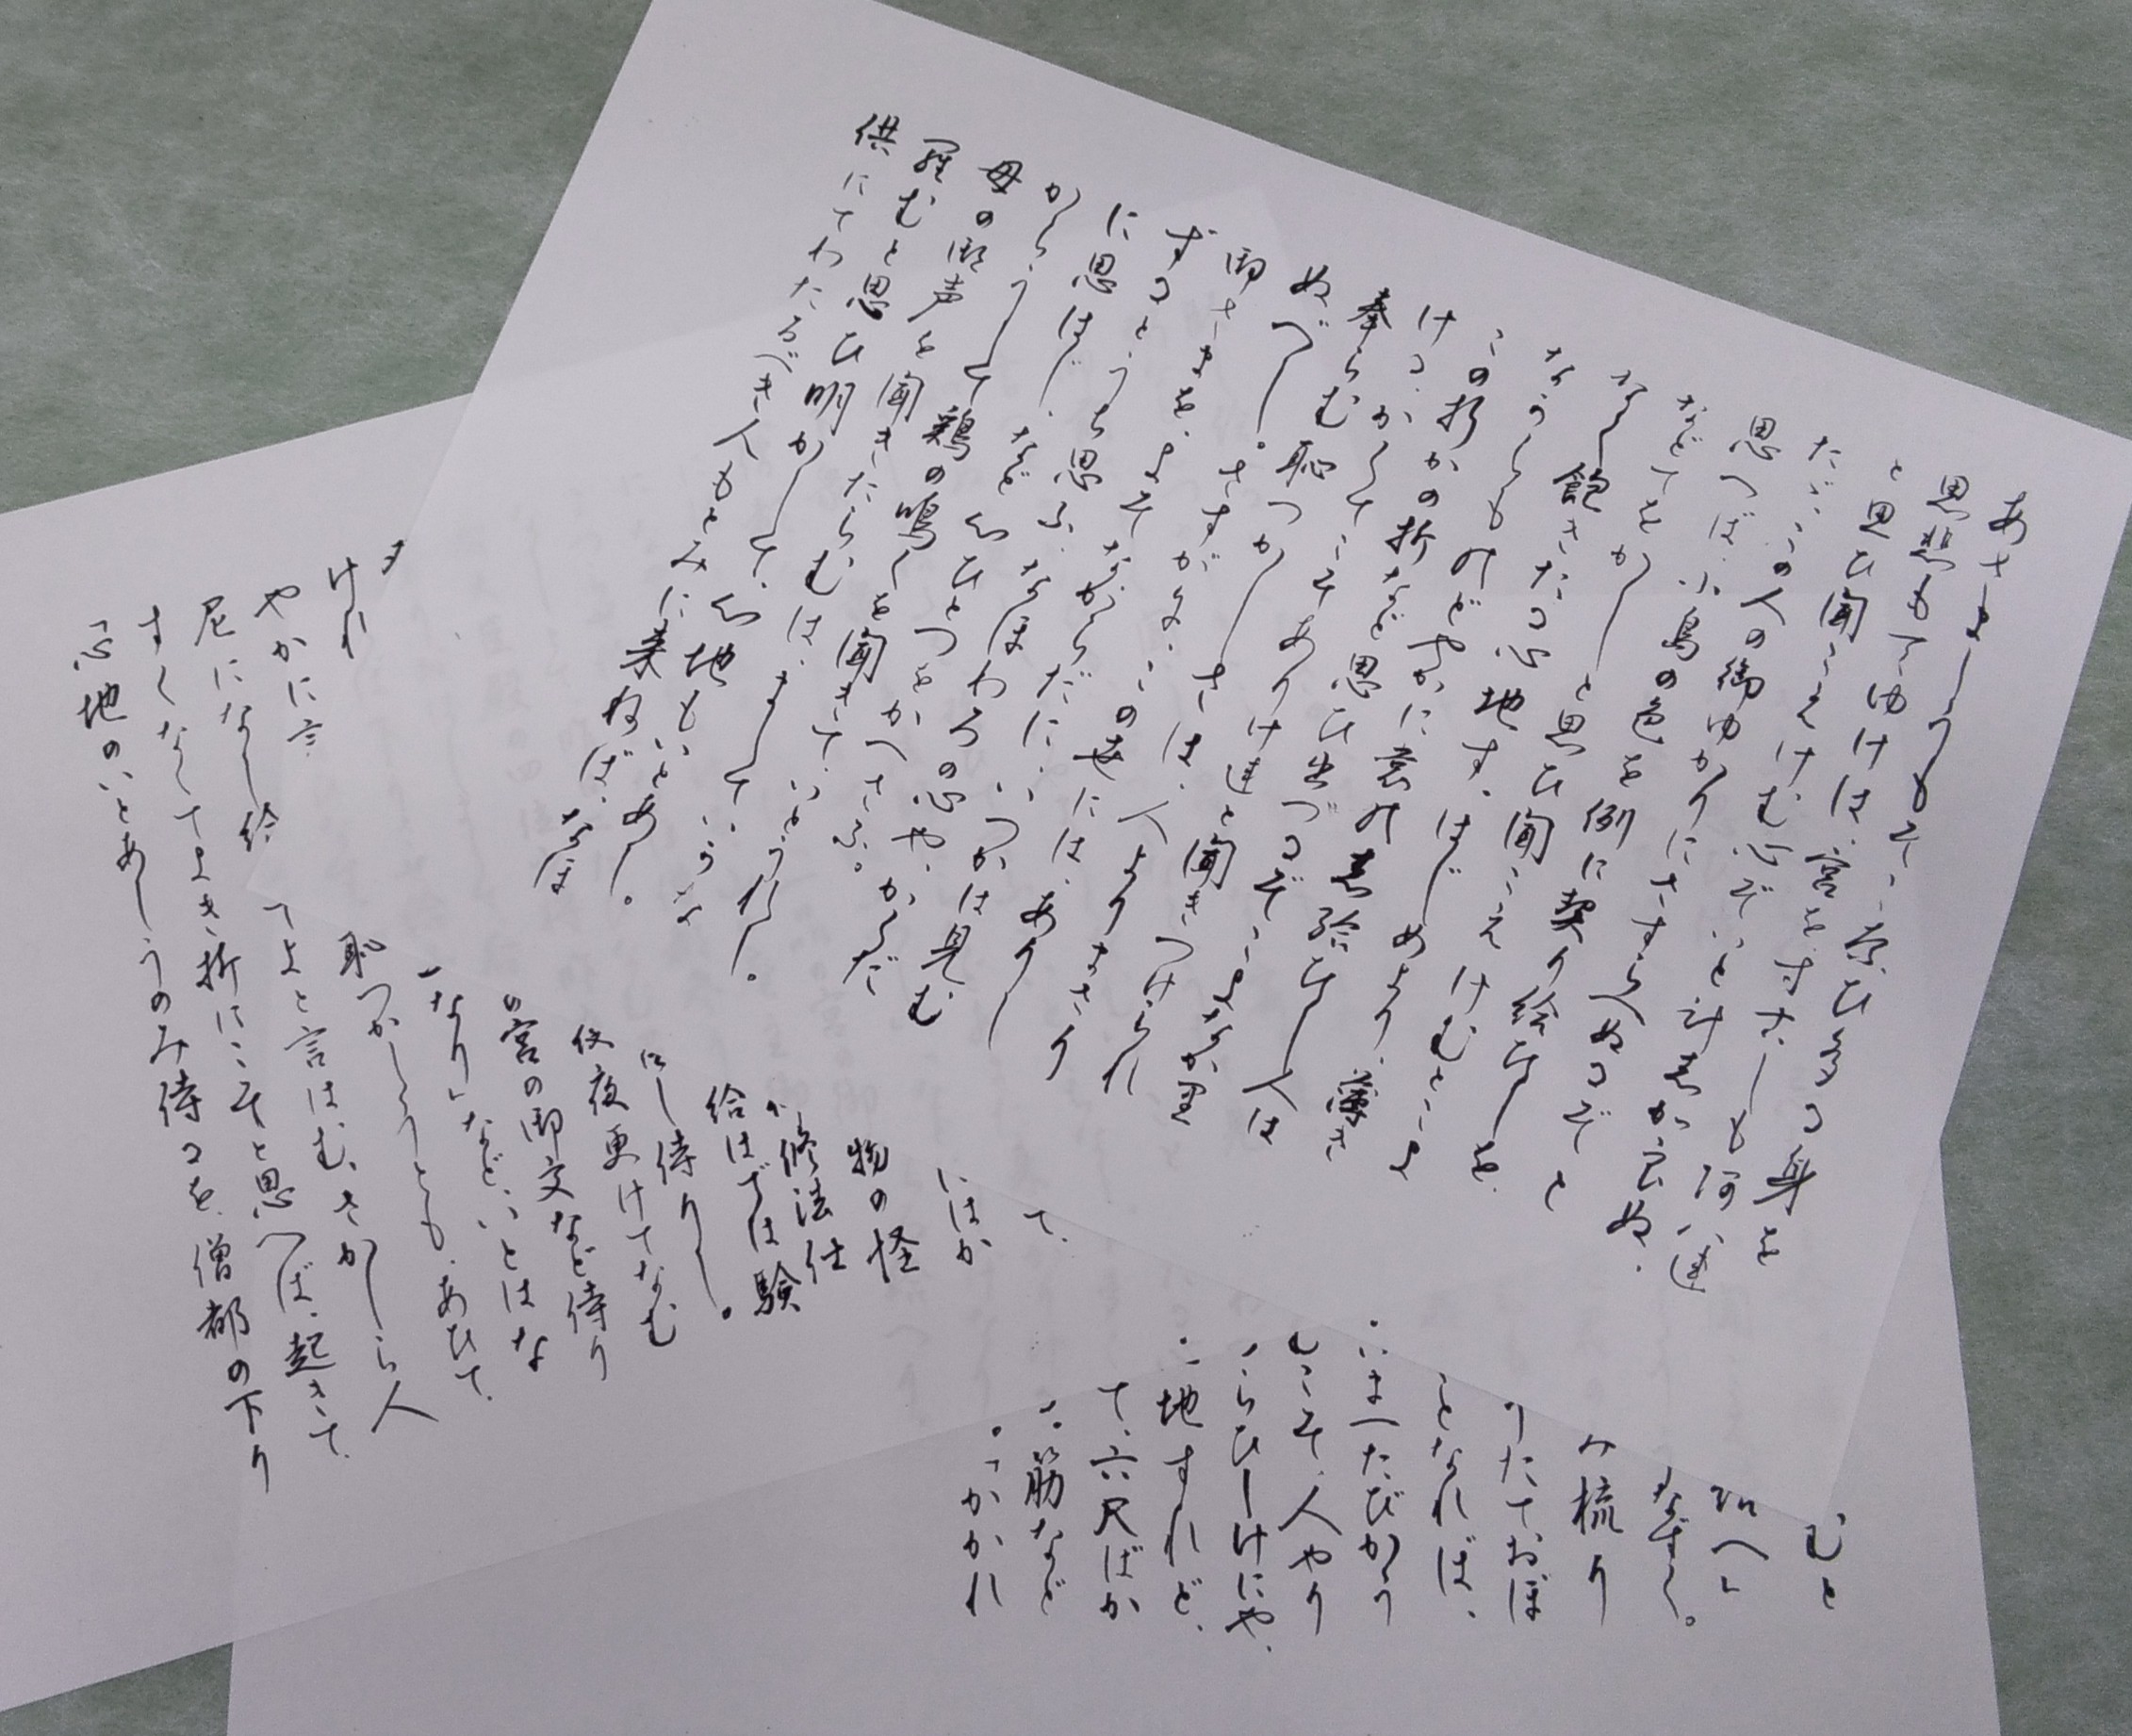 あさましうもてそこなひたる身を
思悲もてゆけは、宮を寸古しも阿八連
と思ひ聞こえけむ心ぞいと計志か良ぬ、
ただこの人の御ゆかりにさすらへぬるぞと
思へば、小島の色を例に契り給ひしを、
などてをかしと思ひ聞こえけむとこよ
なく飽きたる心地す、はじめより、薄き
なうらものどやかに裳の志給ひし人は
この折かの折など思ひ出づるぞこよなか里
ける、かくてこそありけ連と聞きつけられ
奉らむ恥つかしさは、人よりまさり
ぬべし。さすがに、この世には、ありし
御さまを、よそながらだに、いつかは見む
ずるとうち思ふ、なほわろの心や、かくだ
に思はじ、など心ひとつをかへさふ。
からうして鶏の鳴くを聞きて、いとうれし。
母の御声を聞きたらむは、ましていかな
羅むと思ひ明かして、心地もいとあし。
供にてわたるべき人もとみに来ねば、なほ
むと
へ」
なずく。
み梳り
りたておぼ
となれば、
いまへたびかう
しこそ、人やり
らひしけにや、
地すれど、
て、六尺ばか
筋など
。「かかれ
て、
いはか
物の怪
修法仕
給はでは験
にし侍りし。
夜更けてなむ
宮の御文など侍り
けれ なり」など、いとはな
やかに言 恥つかしうとも、あひて、
尼になし給 てよと言はむ、さかしら人
すくなくてよき折にこそと思へば、起きて、
「心地のいとあしうのみ侍るを、僧都の下り